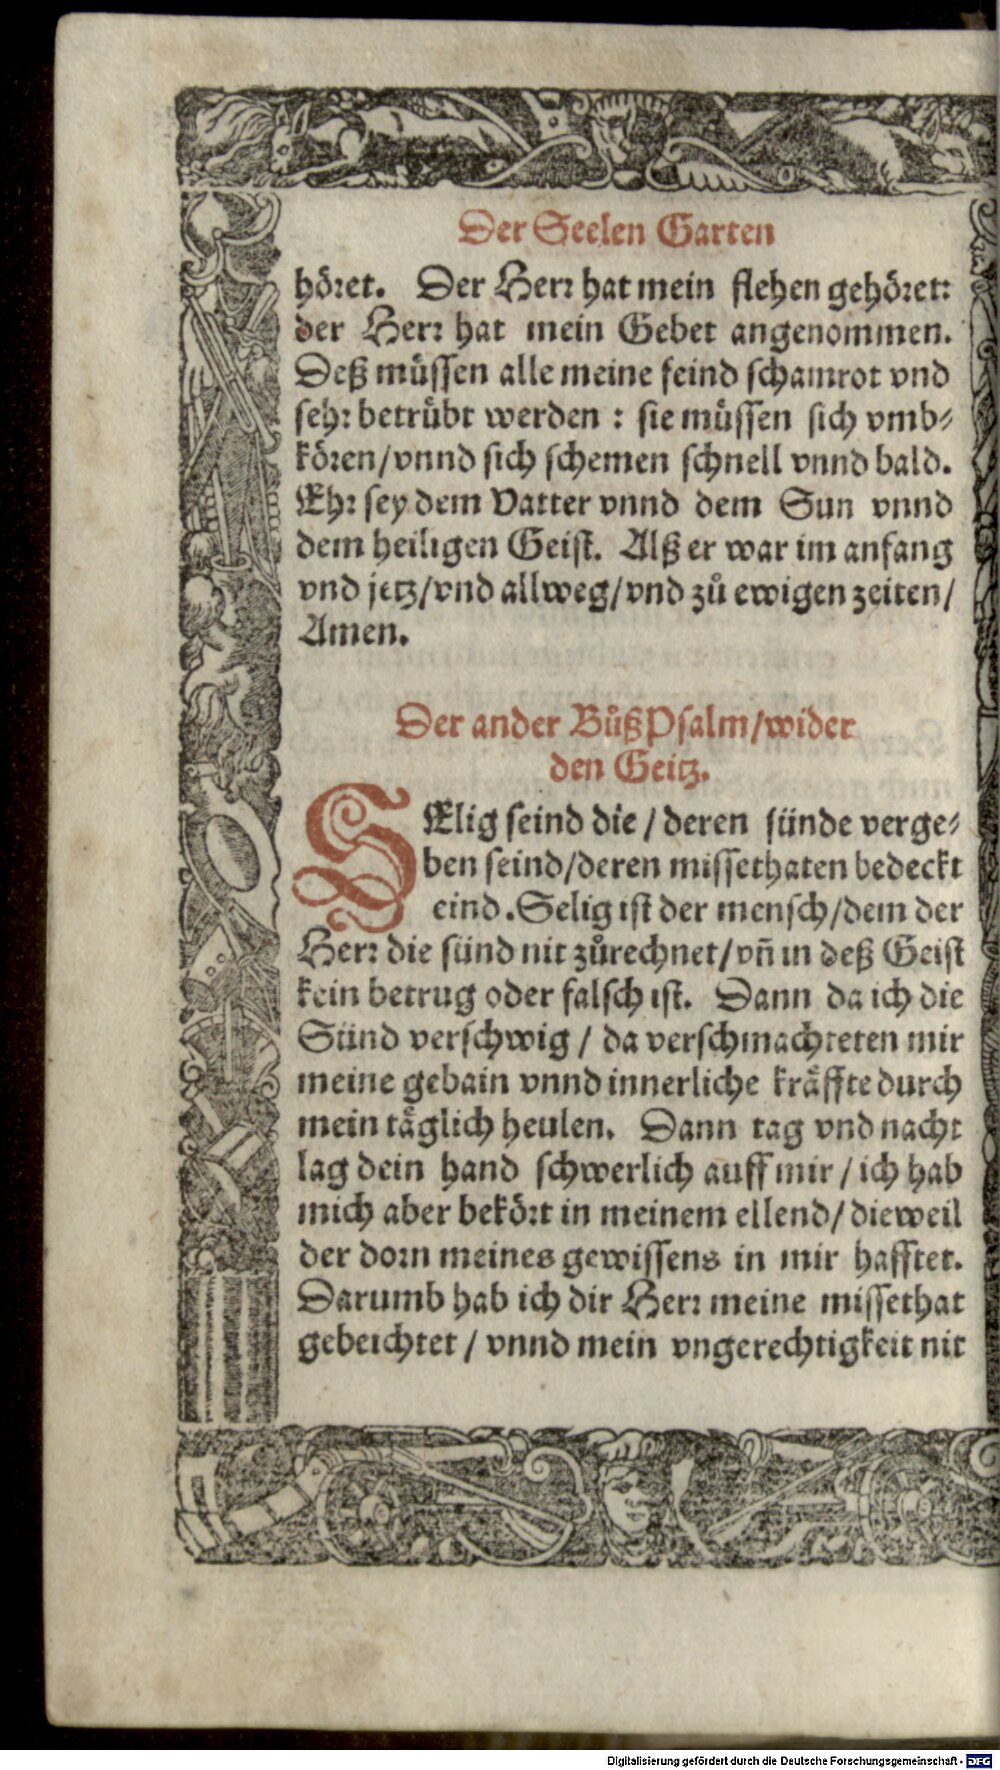 Der Seelen Garten
höret. Der Herr hat mein flehen gehöret:
der Herr hat mein Gebet angenommen.
Deß müssen alle meine feind schamrot vnd
sehr betrübt werden : sie müssen sich vmb⸗
kören/vnnd sich schemen schnell vnnd bald.
Ehr sey dem Vatter vnnd dem Sun vnnd
dem heiligen Geist. Alß er war im anfang
vnd jetz/vnd allweg/vnd zů ewigen zeiten/
Amen.
Der ander BůßPsalm/wider
den Geitz.
SElig seind die / deren sünde verge⸗
ben seind/deren missethaten bedeckt
eind. Selig ist der mensch/dem der
Herr die sünd nit zůrechnet/vñ in deß Geist
kein betrug oder falsch ist. Dann da ich die
Sünd verschwig / da verschmachteten mir
meine gebain vnnd innerliche kräffte durch
mein täglich heulen. Dann tag vnd nacht
lag dein hand schwerlich auff mir / ich hab
mich aber bekört in meinem ellend/ dieweil
der dorn meines gewissens in mir hafftet.
Darumb hab ich dir Herr meine missethat
gebeichtet / vnnd mein vngerechtigkeit nit
Digitalisierung gefördert durch die Deutsche Forschungsgemeinschaft - DFG